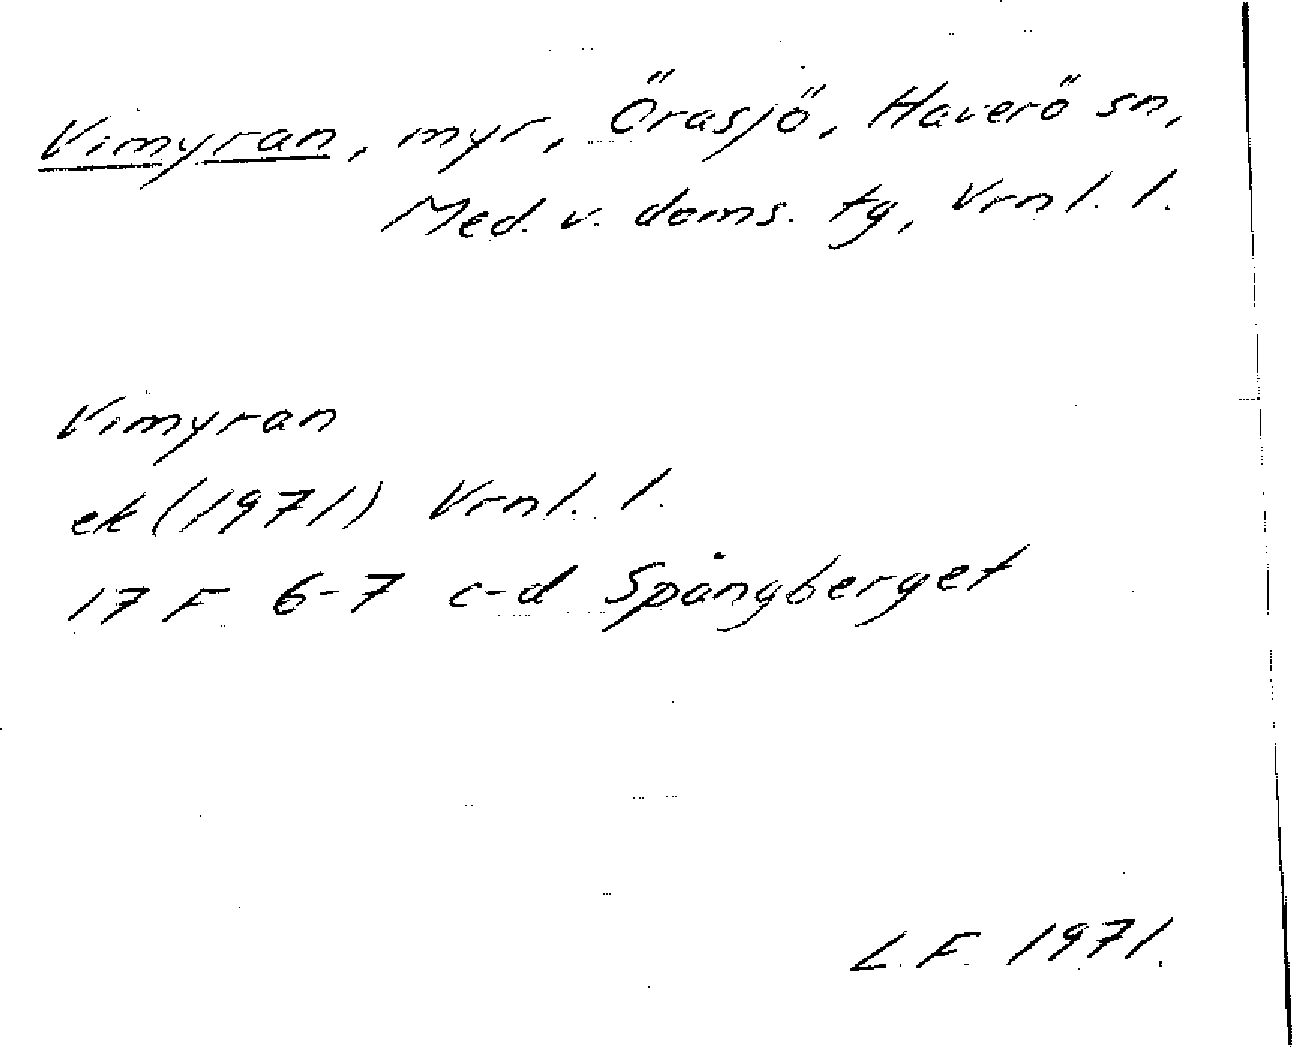 Vimyran, myr, Örasjö, Haverö sn,
Med. v. doms. tg, Vrnl. l.
Vimyran
ek (1971) Vrnl. l.
17 F 6-7 c-d Spångberget
L. F. 1971.